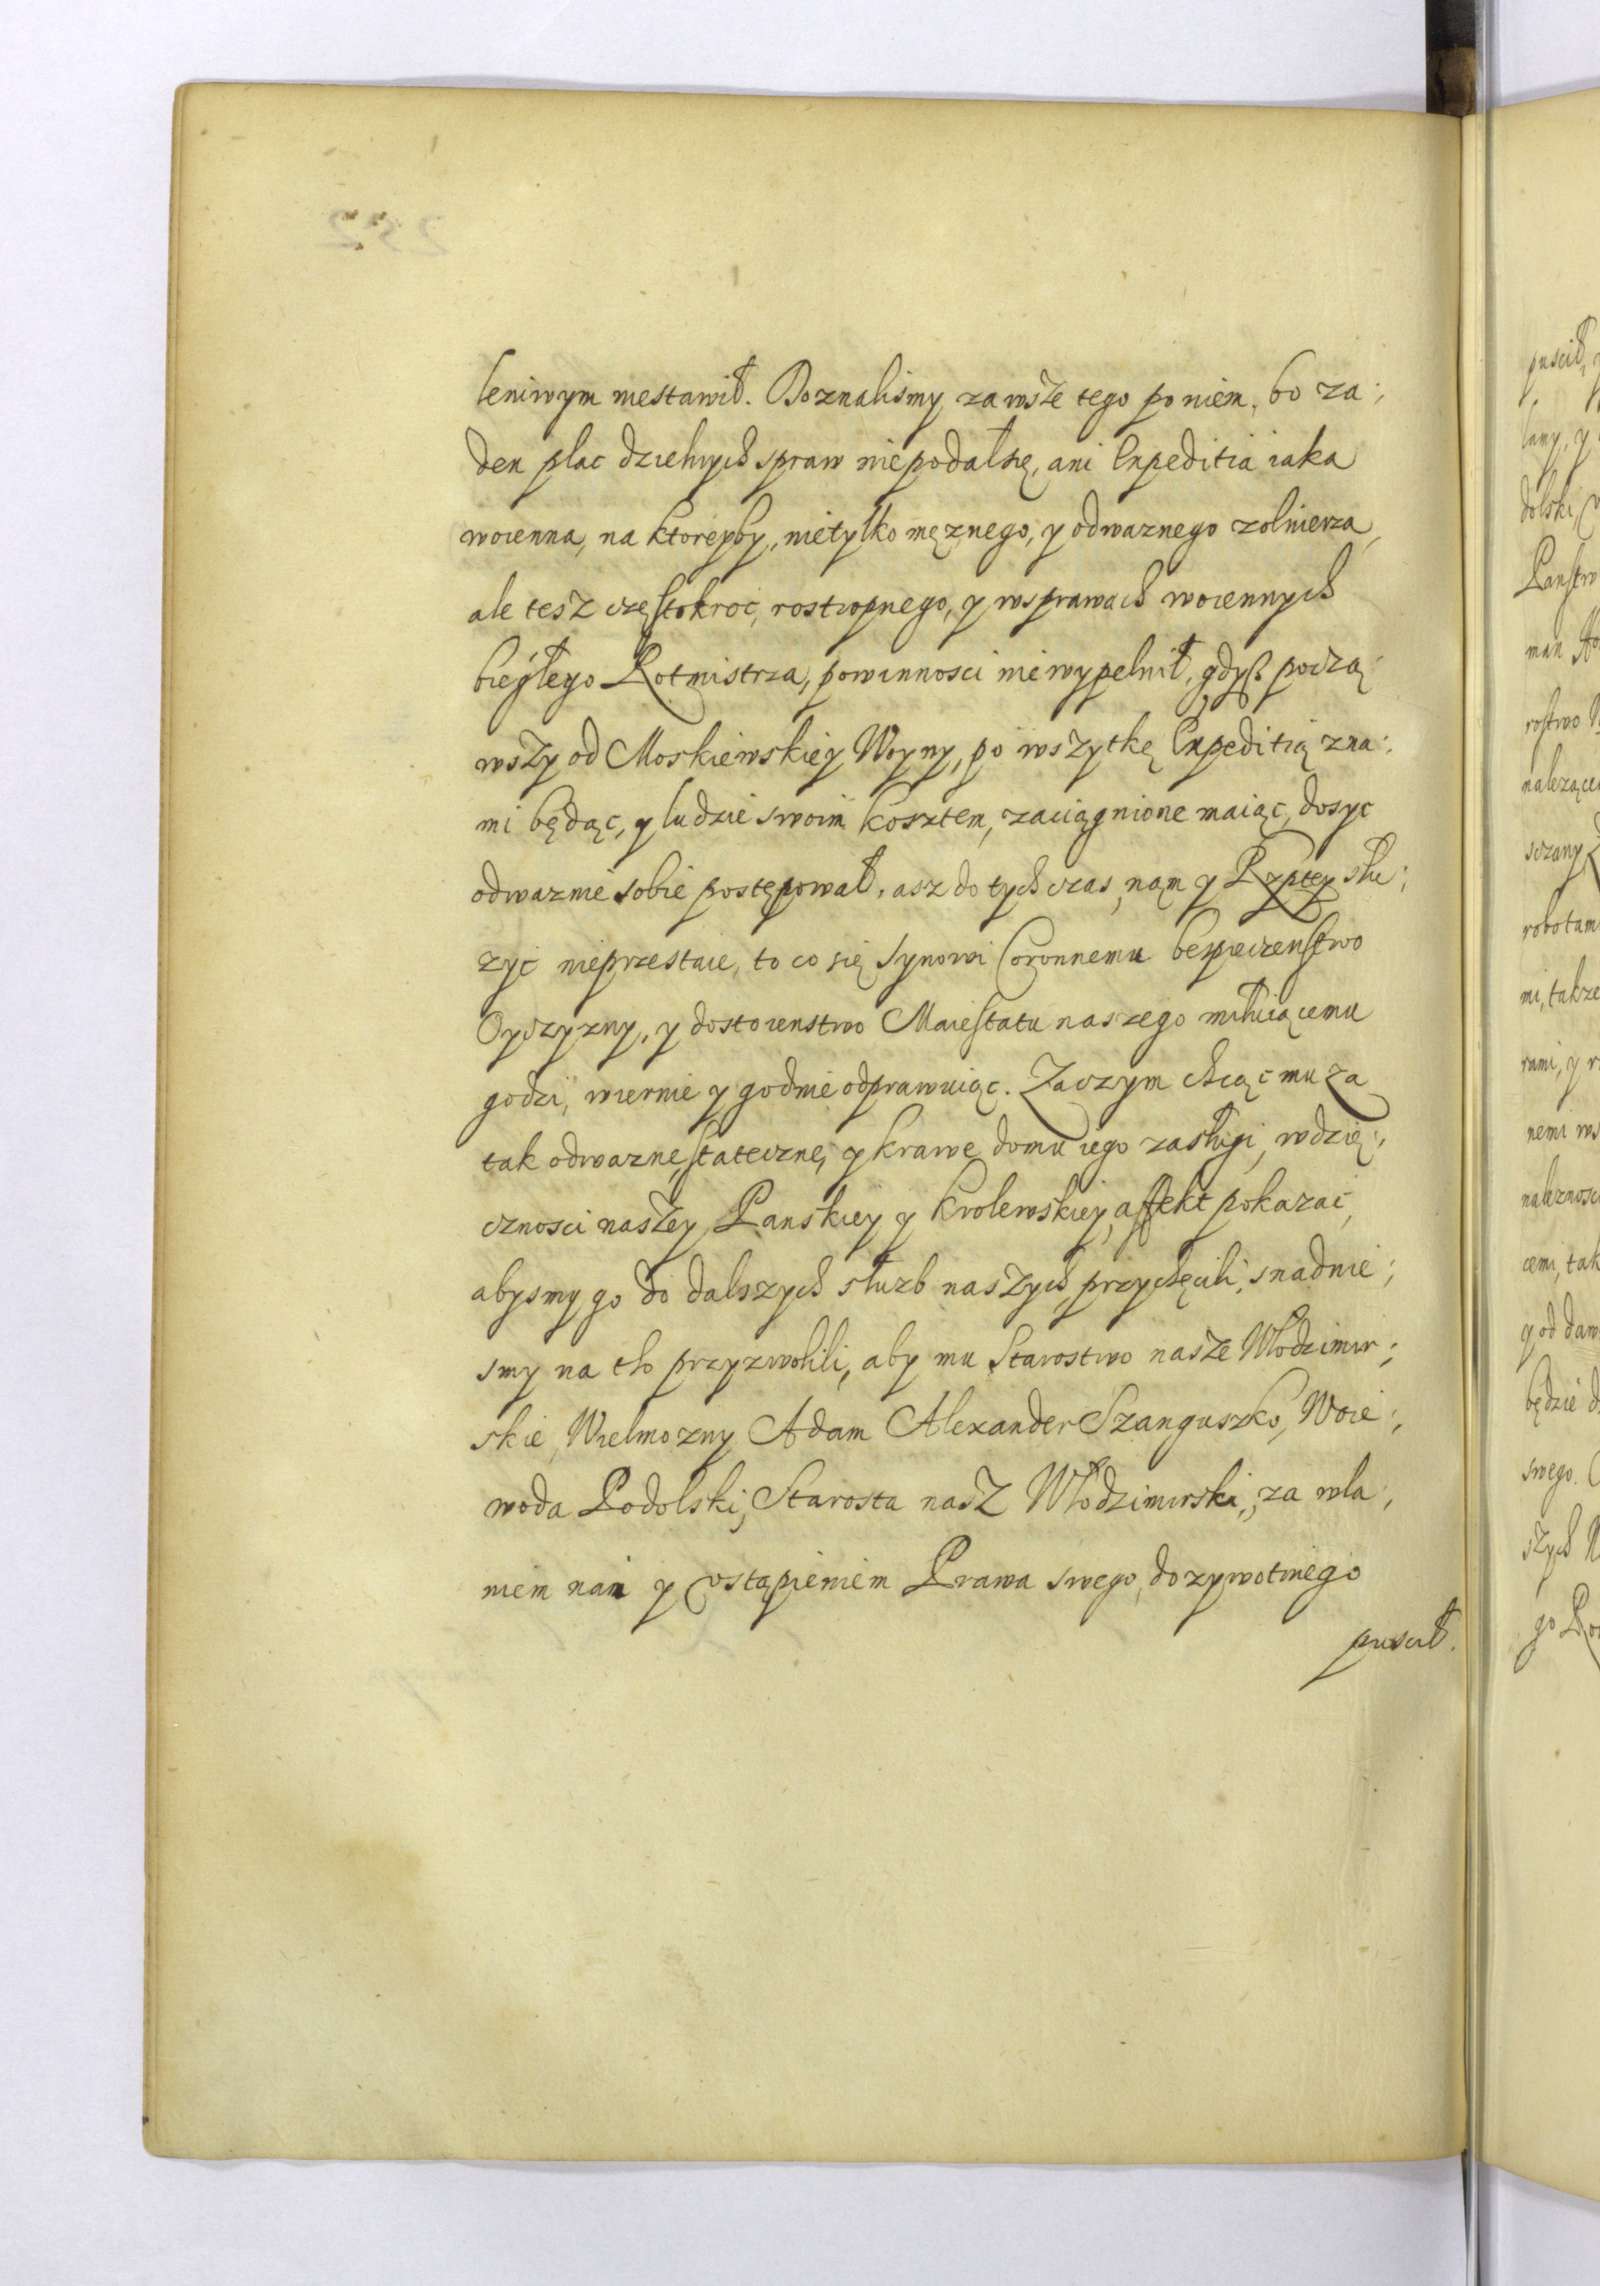 leniwym niestawił. Doznaliśmy zawsze tego po niem, bo za:
den plac dzielnych spraw niepodał się, ani Expeditia iaka
woienna, na ktoreyby, nietylko mężnego, y odwaznego zolnierza,
ale tesz częstokroc, rostropnego, y wsprawach woiennych
biegłego Rotmistrza, powinnosci niewypelnił, gdyß począ:
wszy od Moskiewskiey Woyny, po wszytkę Expeditią zna:
mi będąc, y ludzie swoim kosztem, zaciągnione maiąc, dosyc
odwaznie sobie postępował, asz do tych czas, nam y Rzptey słu:
zyc nieprzestaie, to co się Synowi Coronnemu bespieczenstwo
Oyczyzny, y dostoienstwo Maiestatu naszego miłuiącemu
godzi, wiernie y godnie odprawuiąc. Zaczym chcąc mu za
tak odwazne, stateczne, y krawe domu iego zasługi, wdzię:
cznosci naszey Panskiey y Krolewskiey, affekt pokazać,
abysmy go do dalszych słuzb naszych przychęcili, snadnie:
smy na tho przyzwolili, aby mu Starostwo nasze Włodzimir:
skie, Wielmozny Adam Alexander Szanguszko, Woie:
woda Podolski, Starosta nasz Włodzimirski, za wla:
niem nań y ustąpieniem Prawa swego, dozywotniego
puscił.
puscił,
lany, y
dolski,
Panstw
man
rostwo
nalezące
sczany
robotam
mi, takze
rami, y r
nemi ws
nalznosc
cemi, tak
y od daw
będzie d
swego.
szych
go